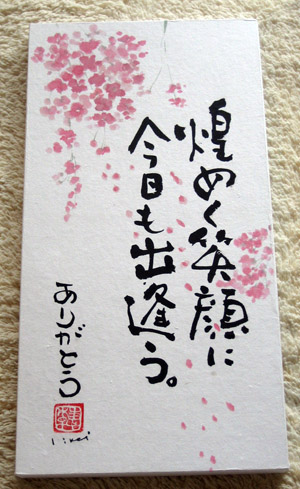 煌めく笑顔に
今日も出逢う。
ありがとう